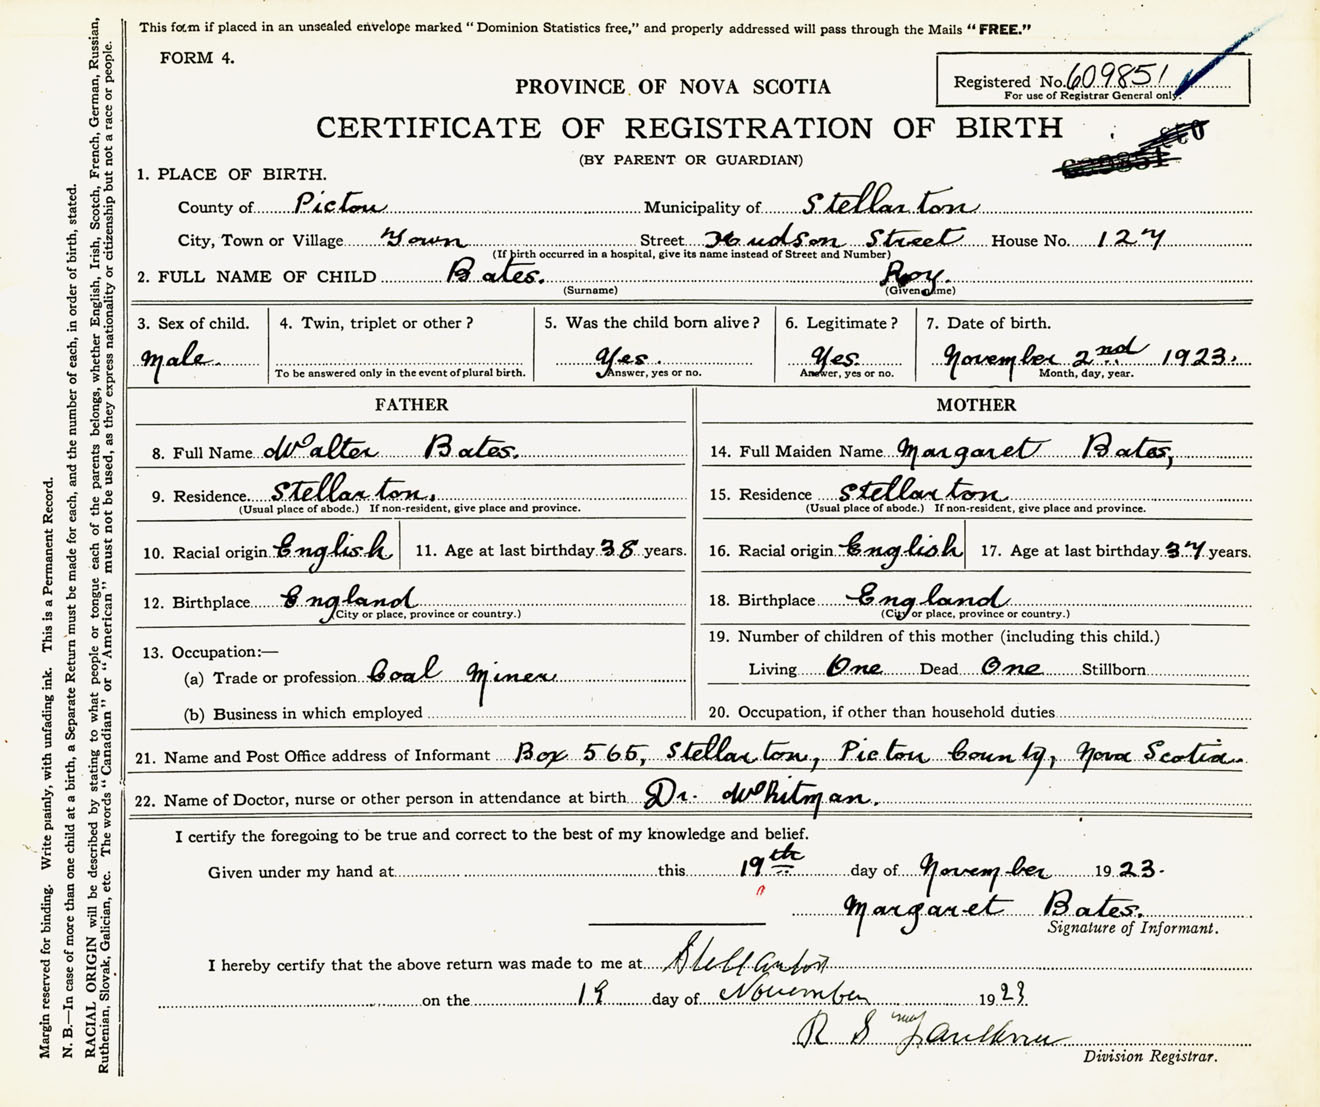 This form if placed in an unsealed envelope marked "Dominion Statistics free," and properly addressed will pass through the Mails "FREE."
FORM 4.
Registered No. 609851
For use of Registrar General only.
PROVINCE OF NOVA SCOTIA
CERTIFICATE OF REGISTRATION OF BIRTH
(BY PARENT OR GUARDIAN)
1. PLACE OF BIRTH.
County of Pictou Municipality of Stellarton
City, Town or Village Town Street Hudson Street House No. 127
(If birth occurred in a hospital, give its name instead of Street and Number)
2. FULL NAME OF CHILD Bates. Roy.
(Surname) (Given name)
3. Sex of child. 4. Twin, triplet or other? 5. Was the child born alive? 6. Legitimate? 7. Date of birth.
Male. Yes. Yes. November 2nd 1923.
To be answered only in the event of plural birth. Answer, yes or no. Answer, yes or no. Month, day, year.
FATHER MOTHER
8. Full Name Walter Bates. 14. Full Maiden Name Margaret Bates,
9. Residence. Stellarton. 15. Residence Stellarton
(Usual place of abode.) If non-resident, give place and province. (Usual place of abode.) If non-resident, give place and province.
10. Racial origin English 11. Age at last birthday 38 years. 16. Racial origin English 17. Age at last birthday 37 years.
12. Birthplace England 18. Birthplace England
(City or place, province or country.) (City or place, province or country.)
19. Number of children of this mother (including this child.)
13. Occupation:—
(a) Trade or profession Coal Miner Living One Dead One Stillborn
(b) Business in which employed 20. Occupation, if other than household duties
21. Name and Post Office address of Informant Box 565, Stellarton, Pictou County, Nova Scotia.
22. Name of Doctor, nurse or other person in attendance at birth Dr. Whitman.
I certify the foregoing to be true and correct to the best of my knowledge and belief.
Given under my hand at this 19th day of November 1923.
Margaret Bates.
Signature of Informant.
I hereby certify that the above return was made to me at Stellarton
on the 19 day of November 1923
R S Faulkner
Division Registrar.
Margin reserved for binding. Write plainly, with unfading ink. This is a Permanent Record.
N. B.—In case of more than one child at a birth, a Separate Return must be made for each, and the number of each, in order of birth, stated.
RACIAL ORIGIN will be described by stating to what people or tongue each of the parents belongs, whether English, Irish, Scotch, French, German, Russian,
Ruthenian, Slovak, Galician, etc. The words "Canadian" or "American" must not be used, as they express nationality or citizenship but not a race or people.